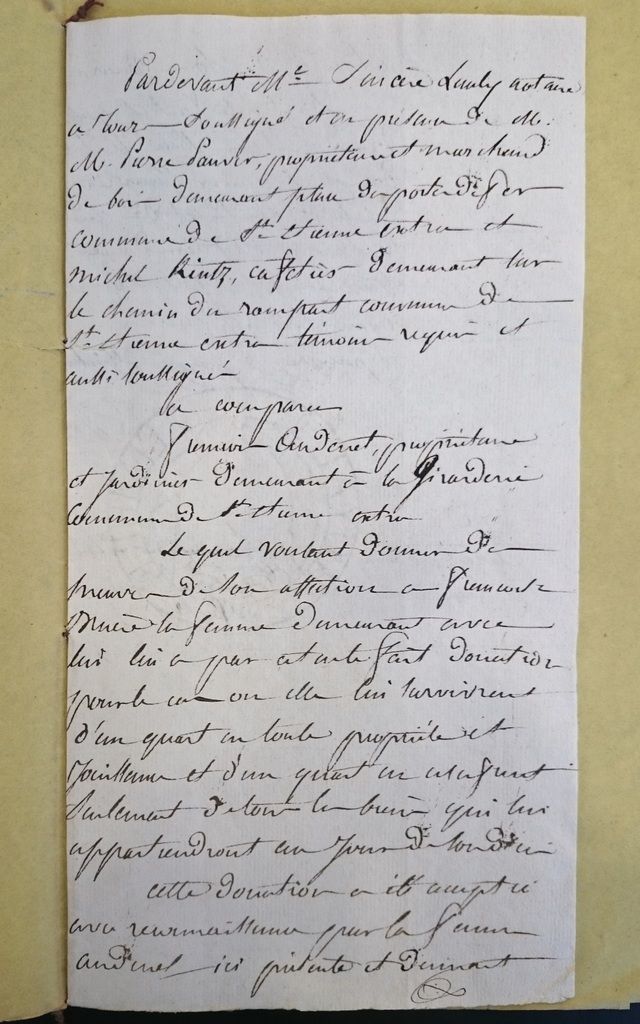 Pardevant Me Sincère notaire
a Tours Soussigné et en présence de M.
M. Pierre propriétaire et marchand
de bois demeurant place du porte de fer
commune de St Etienne extra et
michel Rintz, caffetier demeurant sur
le chemin du rampart commune de
St Etienne extra témoins requis et
aussi soussignés
a comparu
francois Audenet, propriétaire
et jardinier demeurant à la Girarderie
Commune de St Etienne extra
Lequel voulant donner des
preuves de son affection a francoise
la femme demeurant avec
lui lui a par cet acte fait donation
pour le cas ou elle lui survivrait
d'un quart en toute propriété et
Jouissance et d'un quart en usufruit
Seulement de tous les biens qui lui
appartiendront au Jour de son décès
cette donation a été acceptée
avec reconnaissance par la femme
audenet ici présente et